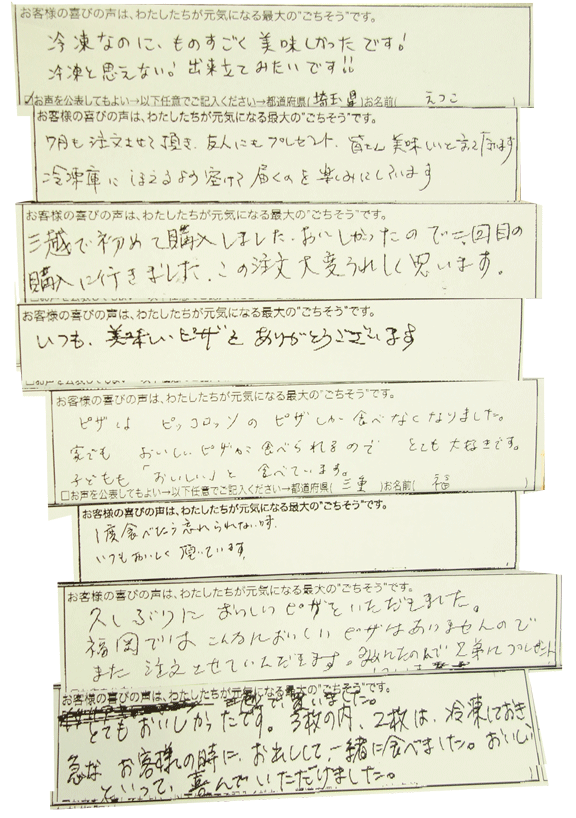 お客様の喜びの声は、わたしたちが元気になる最大の"ごちそう"です。
冷凍なのに、ものすごく美味しかったです!
冷凍と思えない! 出来立てみたいです!!
お声を公表してもよい→以下任意でご記入ください→都道府県(埼玉県)お名前( えつこ )
お客様の喜びの声は、わたしたちが元気になる最大の"ごちそう"です。
7月も注文させて頂き、友人にもプレゼント、皆さん美味しいと言って居ます
冷凍庫に ほえるよう空けて届くのを楽しみにしています
お客様の喜びの声は、わたしたちが元気になる最大の"ごちそう"です。
三越で初めて購入しました、おいしかったので二回目の
購入に行きました、この注文大変うれしく思います。
お客様の喜びの声は、わたしたちが元気になる最大の"ごちそう"です。
いつも、美味しいピザを ありがとうございます
お客様の喜びの声は、わたしたちが元気になる最大の"ごちそう"です。
ピザは ピッコロッソの ピザしか食べなくなりました。
家でも おいしいピザが食べられるので とても大好きです。
子どもも「おいしい」と 食べています。
□お声を公表してもよい→以下任意でご記入ください→都道府県( 三重 )お名前( 福
お客様の喜びの声は、わたしたちが元気になる最大の"ごちそう"です。
1度食べたら忘れられない味
いつもおいしく頂いています。
お客様の喜びの声は、わたしたちが元気になる最大の"ごちそう"です。
久しぶりに おいしいピザをいただきました。
福岡では こんなにおいしい ピザはありませんので
また 注文させていただきます。 兄弟にプレゼント
お客様の喜びの声は、わたしたちが元気になる最大の"ごちそう"です。
で買いました。
とてもおいしかったです。3枚の内、2枚は、冷凍しておき、
急な お客様の時に、お出しして、一緒に食べました。おいしい
といって、喜んでいただけました。